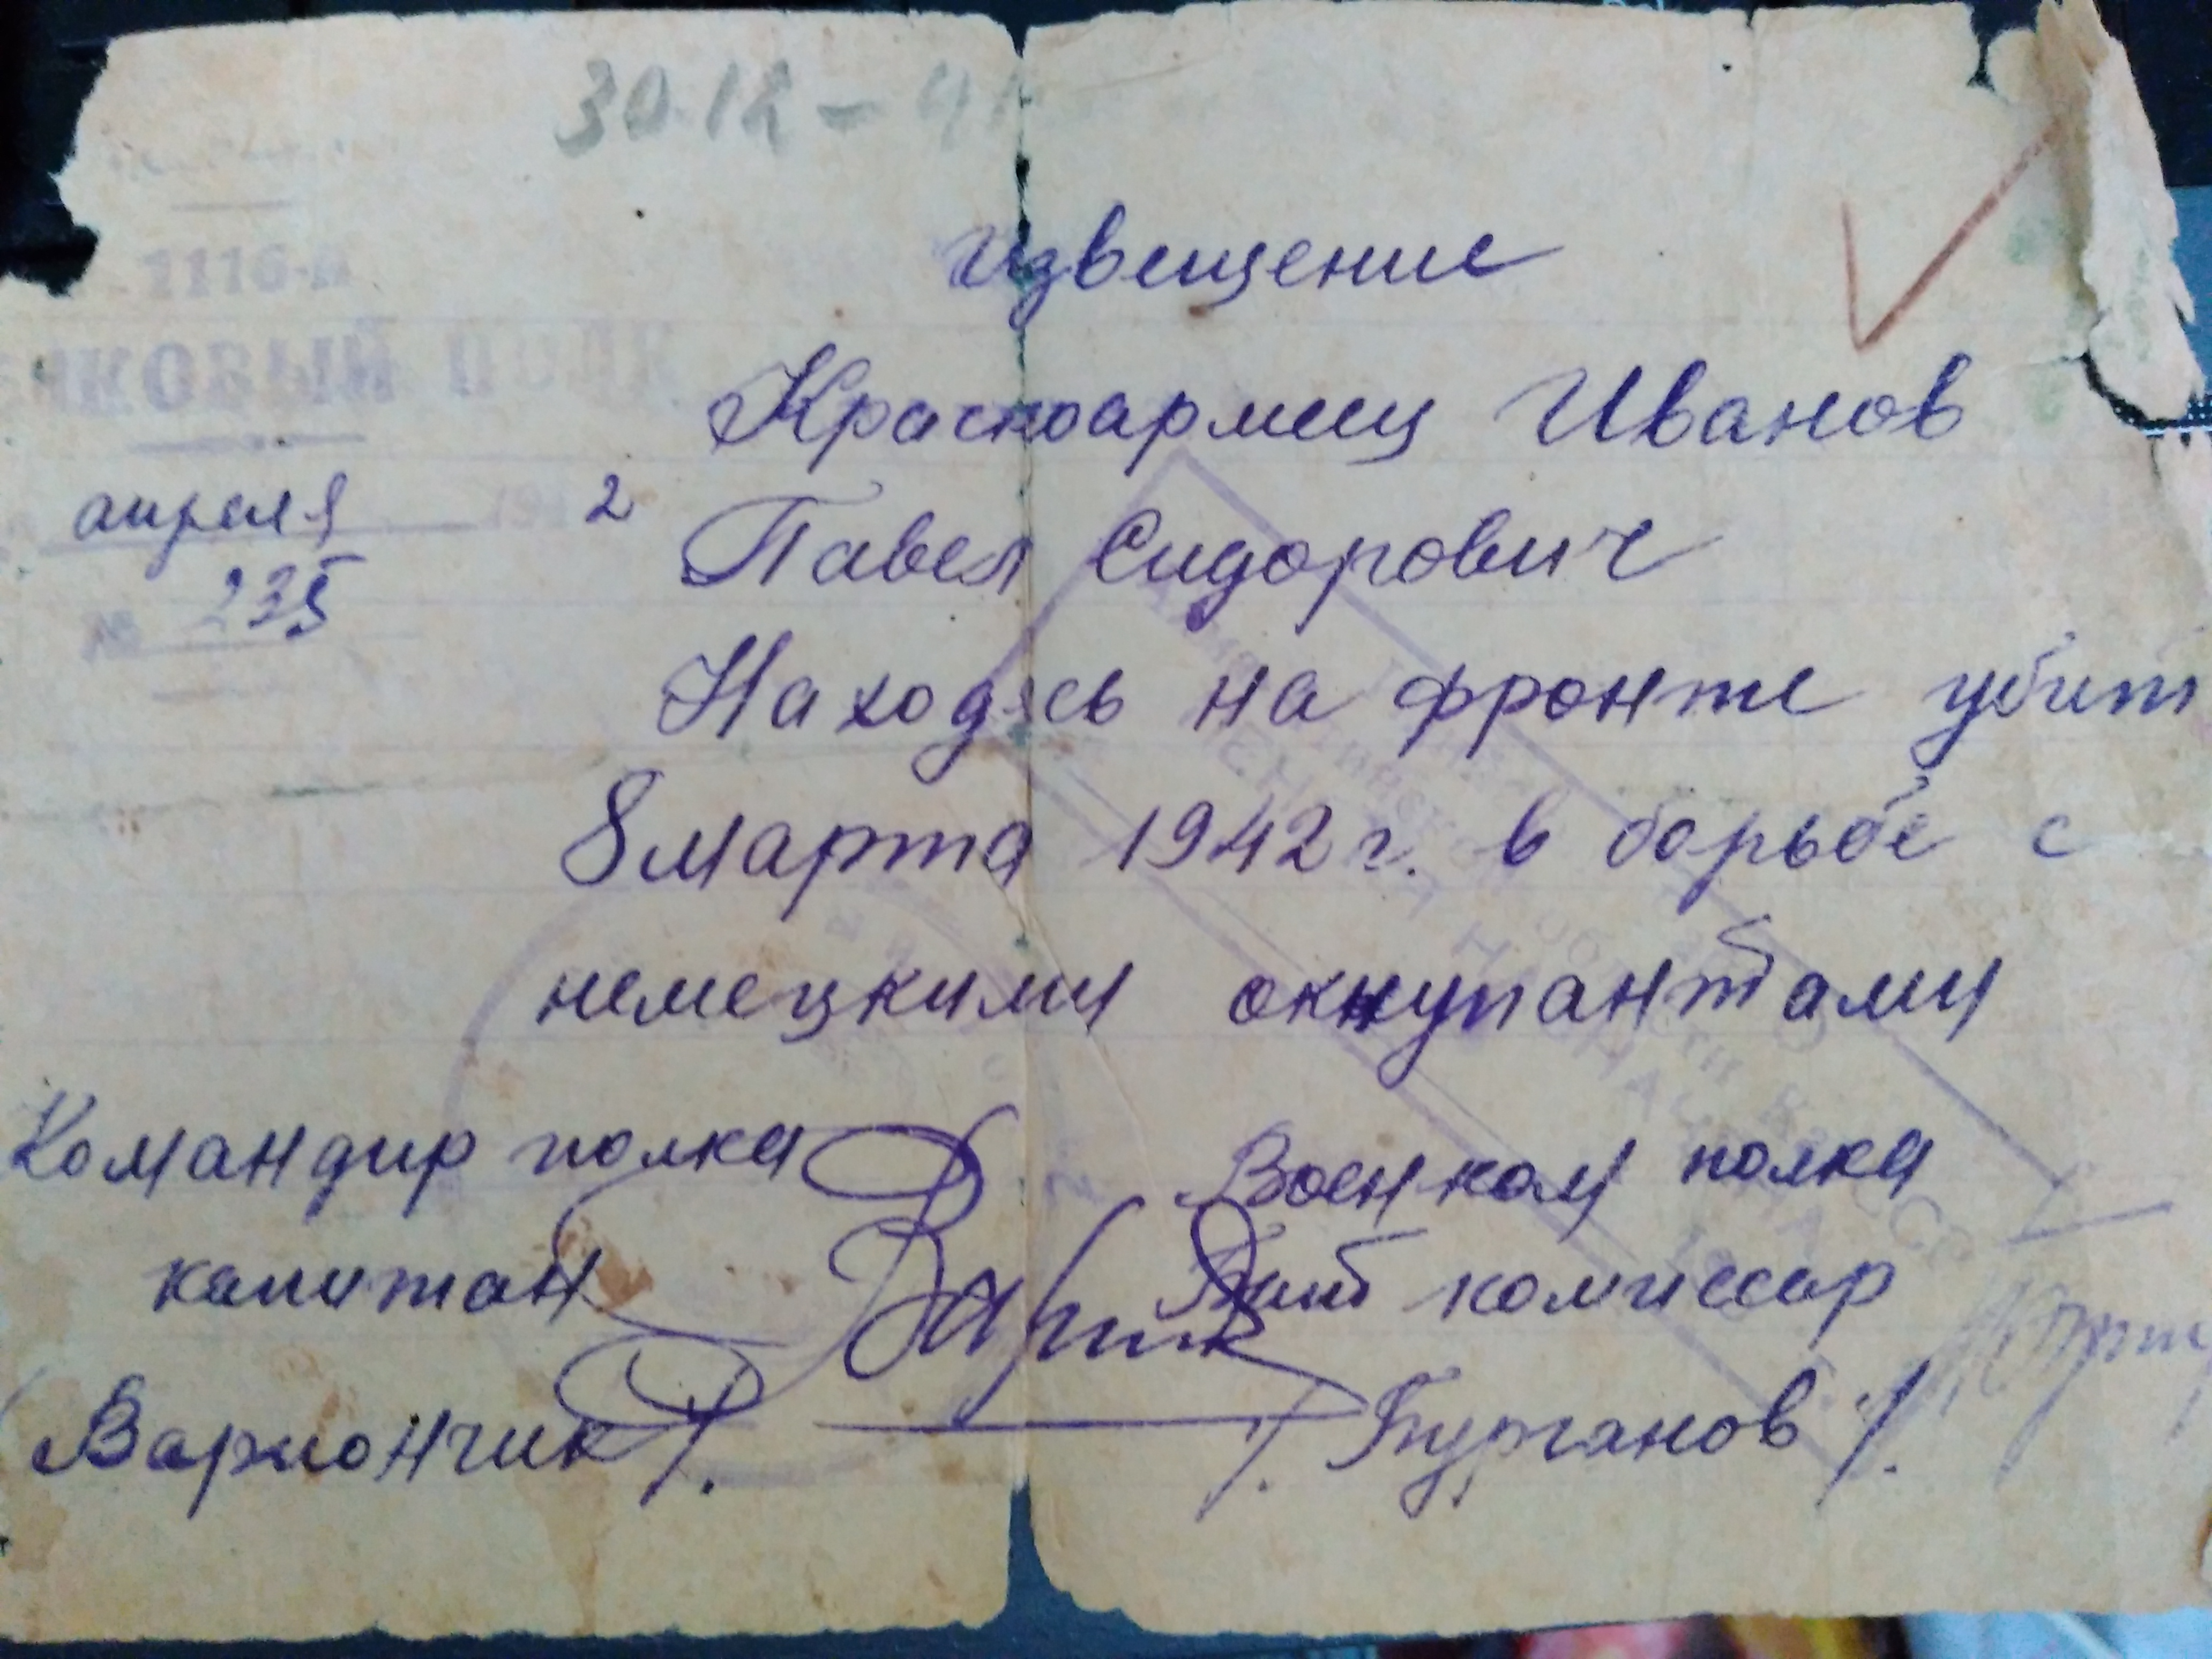 30.12 - 41
извещение
1116-й
ЛКОВЫЙ ПОЛК
Красноармеец Иванов
апреля 1942
Павел Сидорович
№ 235
Находясь на фронте убит
8 марта 1942 г. в борьбе с
немецкими оккупантами
Командир полка
Военком полка
капитан
Бат комиссар
Вариончик /.
/. Бурганов /.